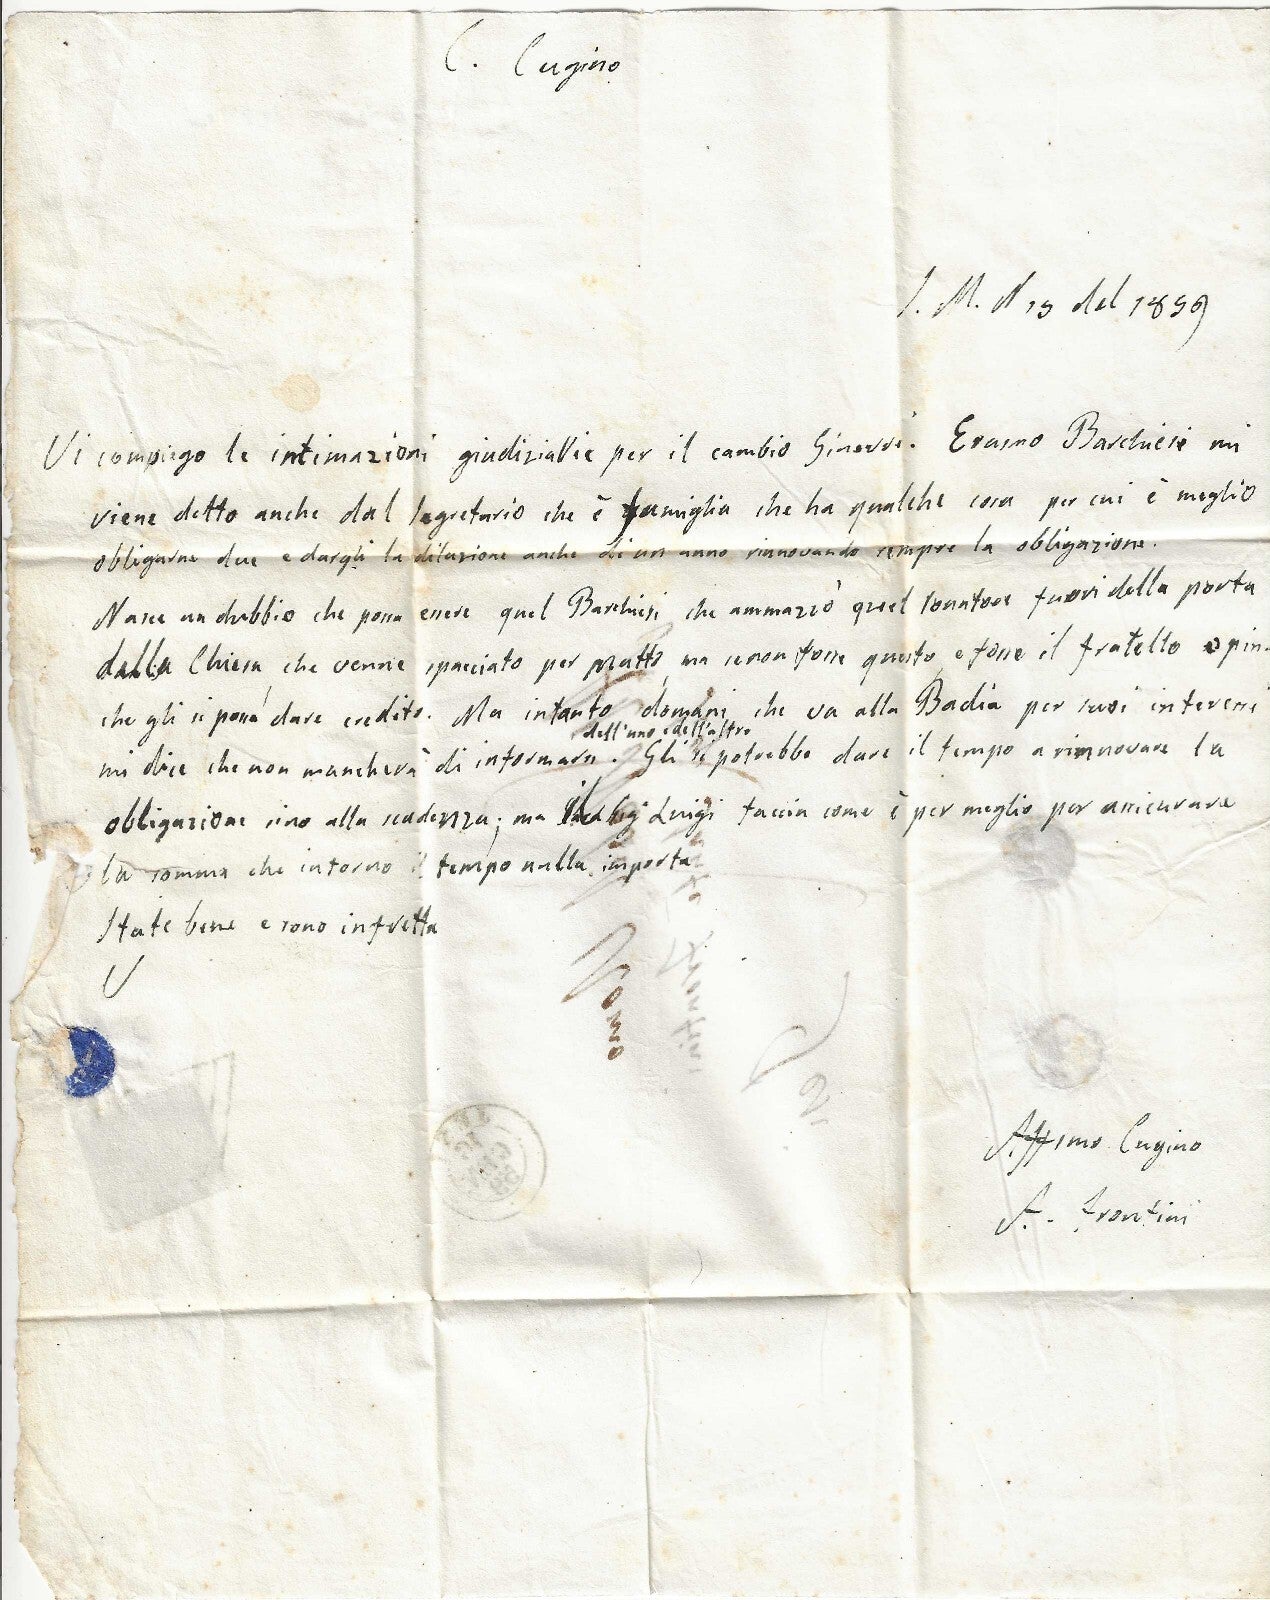 C. Cugino
S. M. d 13 del 1859
Vi compiego le intimazioni giudiziallie per il cambio Ginevri. Erasmo Barchiesi mi
viene detto anche dal Segretario che è famiglia che ha qualche cosa per cui è meglio
obligarne due e dargli la dilazione anche di un anno rinnovando sempre la obligazione.
Nasce un dubbio che possa essere quel Barchiesi che ammazzò quel sonatore fuori della porta
della Chiesa che venne spacciato per matto, ma se non fosse questo, e fosse il fratello
che gli si possa dare credito. Ma intanto domani che va alla Badia per suoi interessi
dell'uno e dell'altro
mi dice che non mancherà di informarsi. Gli si potrebbe dare il tempo a rinnovare la
obligazione sino alla scadenza; ma Luigi faccia come è per meglio per assicurare
la somma che intorno il tempo nulla importa
State bene e sono in fretta
Affimo Cugino
A. Frontini